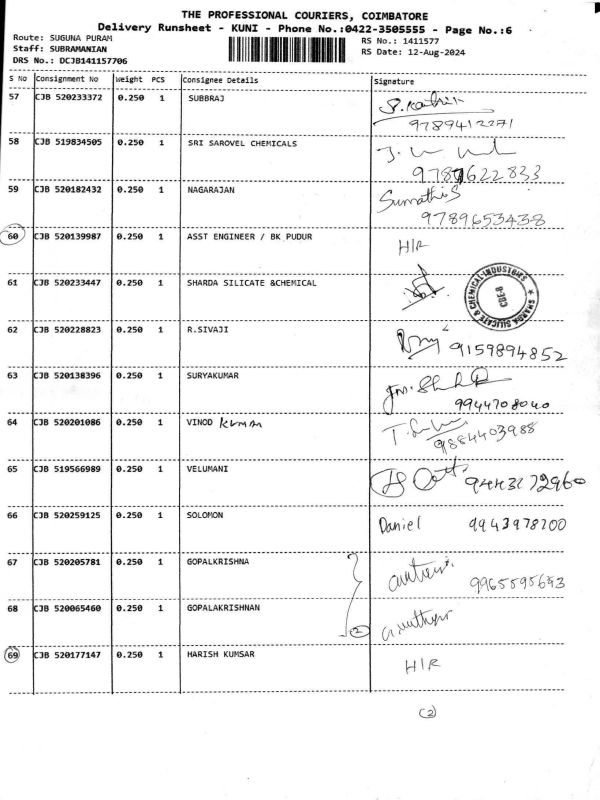 THE PROFESSIONAL COURIERS, COIMBATORE
Delivery Runsheet - KUNI - Phone No.:0422-3505555 - Page No.:6
Route: SUGUNA PURAM RS No.: 1411577
Staff: SUBRAMANIAN RS Date: 12-Aug-2024
DRS No.: DCJB141157706
S No Consignment No Weight PCS Consignee Details Signature
57 CJB 520233372 0.250 1 SUBBRAJ
9789412271
58 CJB 519834505 0.250 1 SRI SAROVEL CHEMICALS
9789622833
59 CJB 520182432 0.250 1 NAGARAJAN Sumathi S
9789653438
60 CJB 520139987 0.250 1 ASST ENGINEER / BK PUDUR H/R
61 CJB 520233447 0.250 1 SHARDA SILICATE &CHEMICAL
SHARDA SILICATE & CHEMICAL INDUSTRIES
CBE-8
62 CJB 520228823 0.250 1 R.SIVAJI 9159894852
63 CJB 520138396 0.250 1 SURYAKUMAR
9944708040
64 CJB 520201086 0.250 1 VINOD Kumar
9884403988
65 CJB 519566989 0.250 1 VELUMANI 9443172960
66 CJB 520259125 0.250 1 SOLOMON Daniel 9943978700
67 CJB 520205781 0.250 1 GOPALKRISHNA 9965595693
68 CJB 520065460 0.250 1 GOPALAKRISHNAN 2
69 CJB 520177147 0.250 1 HARISH KUMSAR H/R
(2)